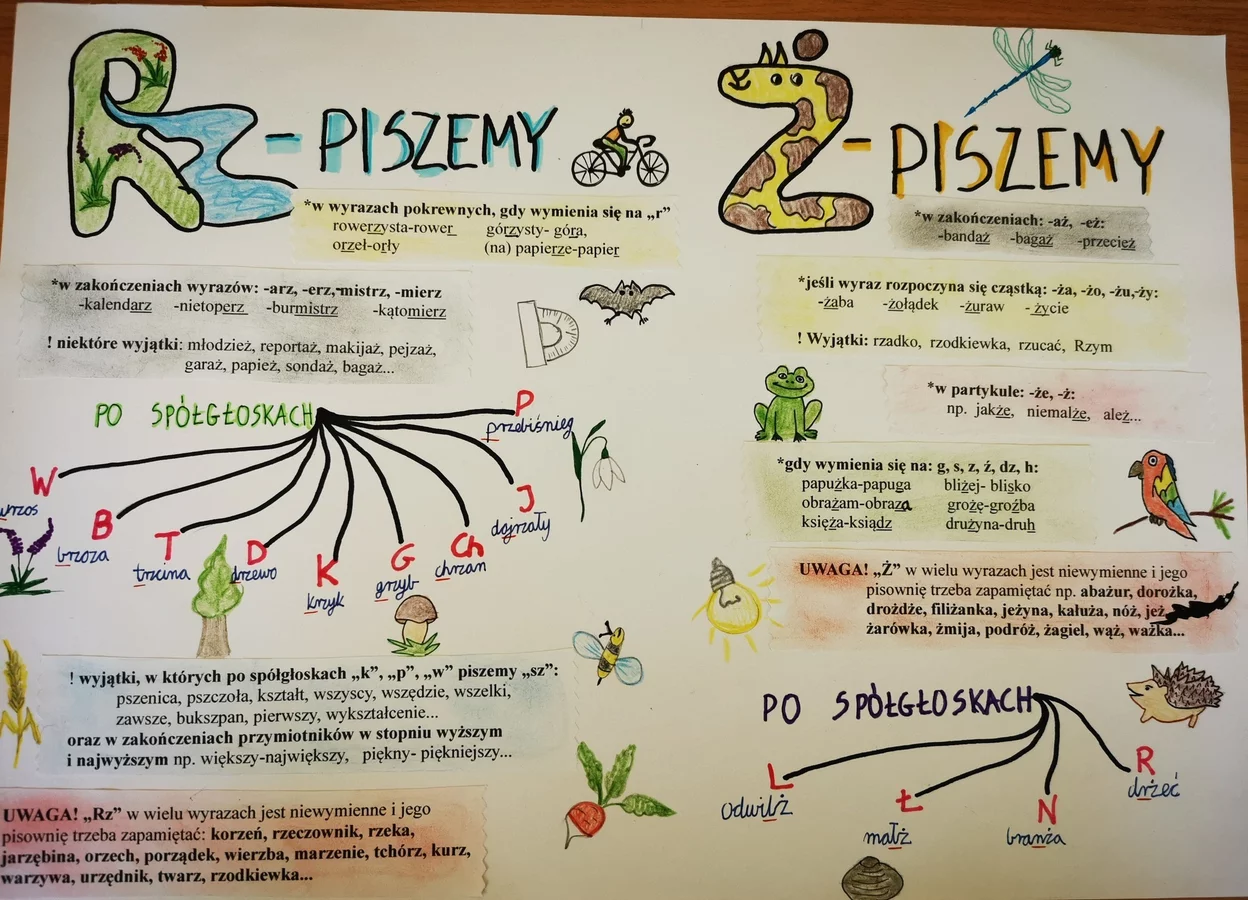 Rz - PISZEMY
*w wyrazach pokrewnych, gdy wymienia się na „r”
rowerzysta-rower górzysty- góra,
orzeł-orły (na) papierze-papier
*w zakończeniach wyrazów: -arz, -erz,-mistrz, -mierz
-kalendarz -nietoperz -burmistrz -kątomierz
! niektóre wyjątki: młodzież, reportaż, makijaż, pejzaż,
garaż, papież, sondaż, bagaż...
PO SPÓŁGŁOSKACH
P
przebiśnieg
W
wrzos
B
brzoza
T
trzcina
D
drzewo
K
krzyk
G
grzyb
Ch
chrzan
J
dojrzały
! wyjątki, w których po spółgłoskach „k”, „p”, „w” piszemy „sz”:
pszenica, pszczoła, kształt, wszyscy, wszędzie, wszelki,
zawsze, bukszpan, pierwszy, wykształcenie...
oraz w zakończeniach przymiotników w stopniu wyższym
i najwyższym np. większy-największy, piękny- piękniejszy...
UWAGA! „Rz” w wielu wyrazach jest niewymienne i jego
pisownię trzeba zapamiętać: korzeń, rzeczownik, rzeka,
jarzębina, orzech, porządek, wierzba, marzenie, tchórz, kurz,
warzywa, urzędnik, twarz, rzodkiewka...
Ż - PISZEMY
*w zakończeniach: -aż, -eż:
-bandaż -bagaż -przecież
*jeśli wyraz rozpoczyna się cząstką: -ża, -żo, -żu,-ży:
-żaba -żołądek -żuraw -życie
! Wyjątki: rzadko, rzodkiewka, rzucać, Rzym
*w partykule: -że, -ż:
np. jakże, niemalże, ależ...
*gdy wymienia się na: g, s, z, ź, dz, h:
papużka-papuga bliżej- blisko
obrażam-obraza grożę-groźba
księża-ksiądz drużyna-druh
UWAGA! „Ż” w wielu wyrazach jest niewymienne i jego
pisownię trzeba zapamiętać np. abażur, dorożka,
drożdże, filiżanka, jeżyna, kałuża, nóż, jeż,
żarówka, żmija, podróż, żagiel, wąż, ważka...
PO SPÓŁGŁOSKACH
L
odwilż
Ł
małż
N
branża
R
drżeć